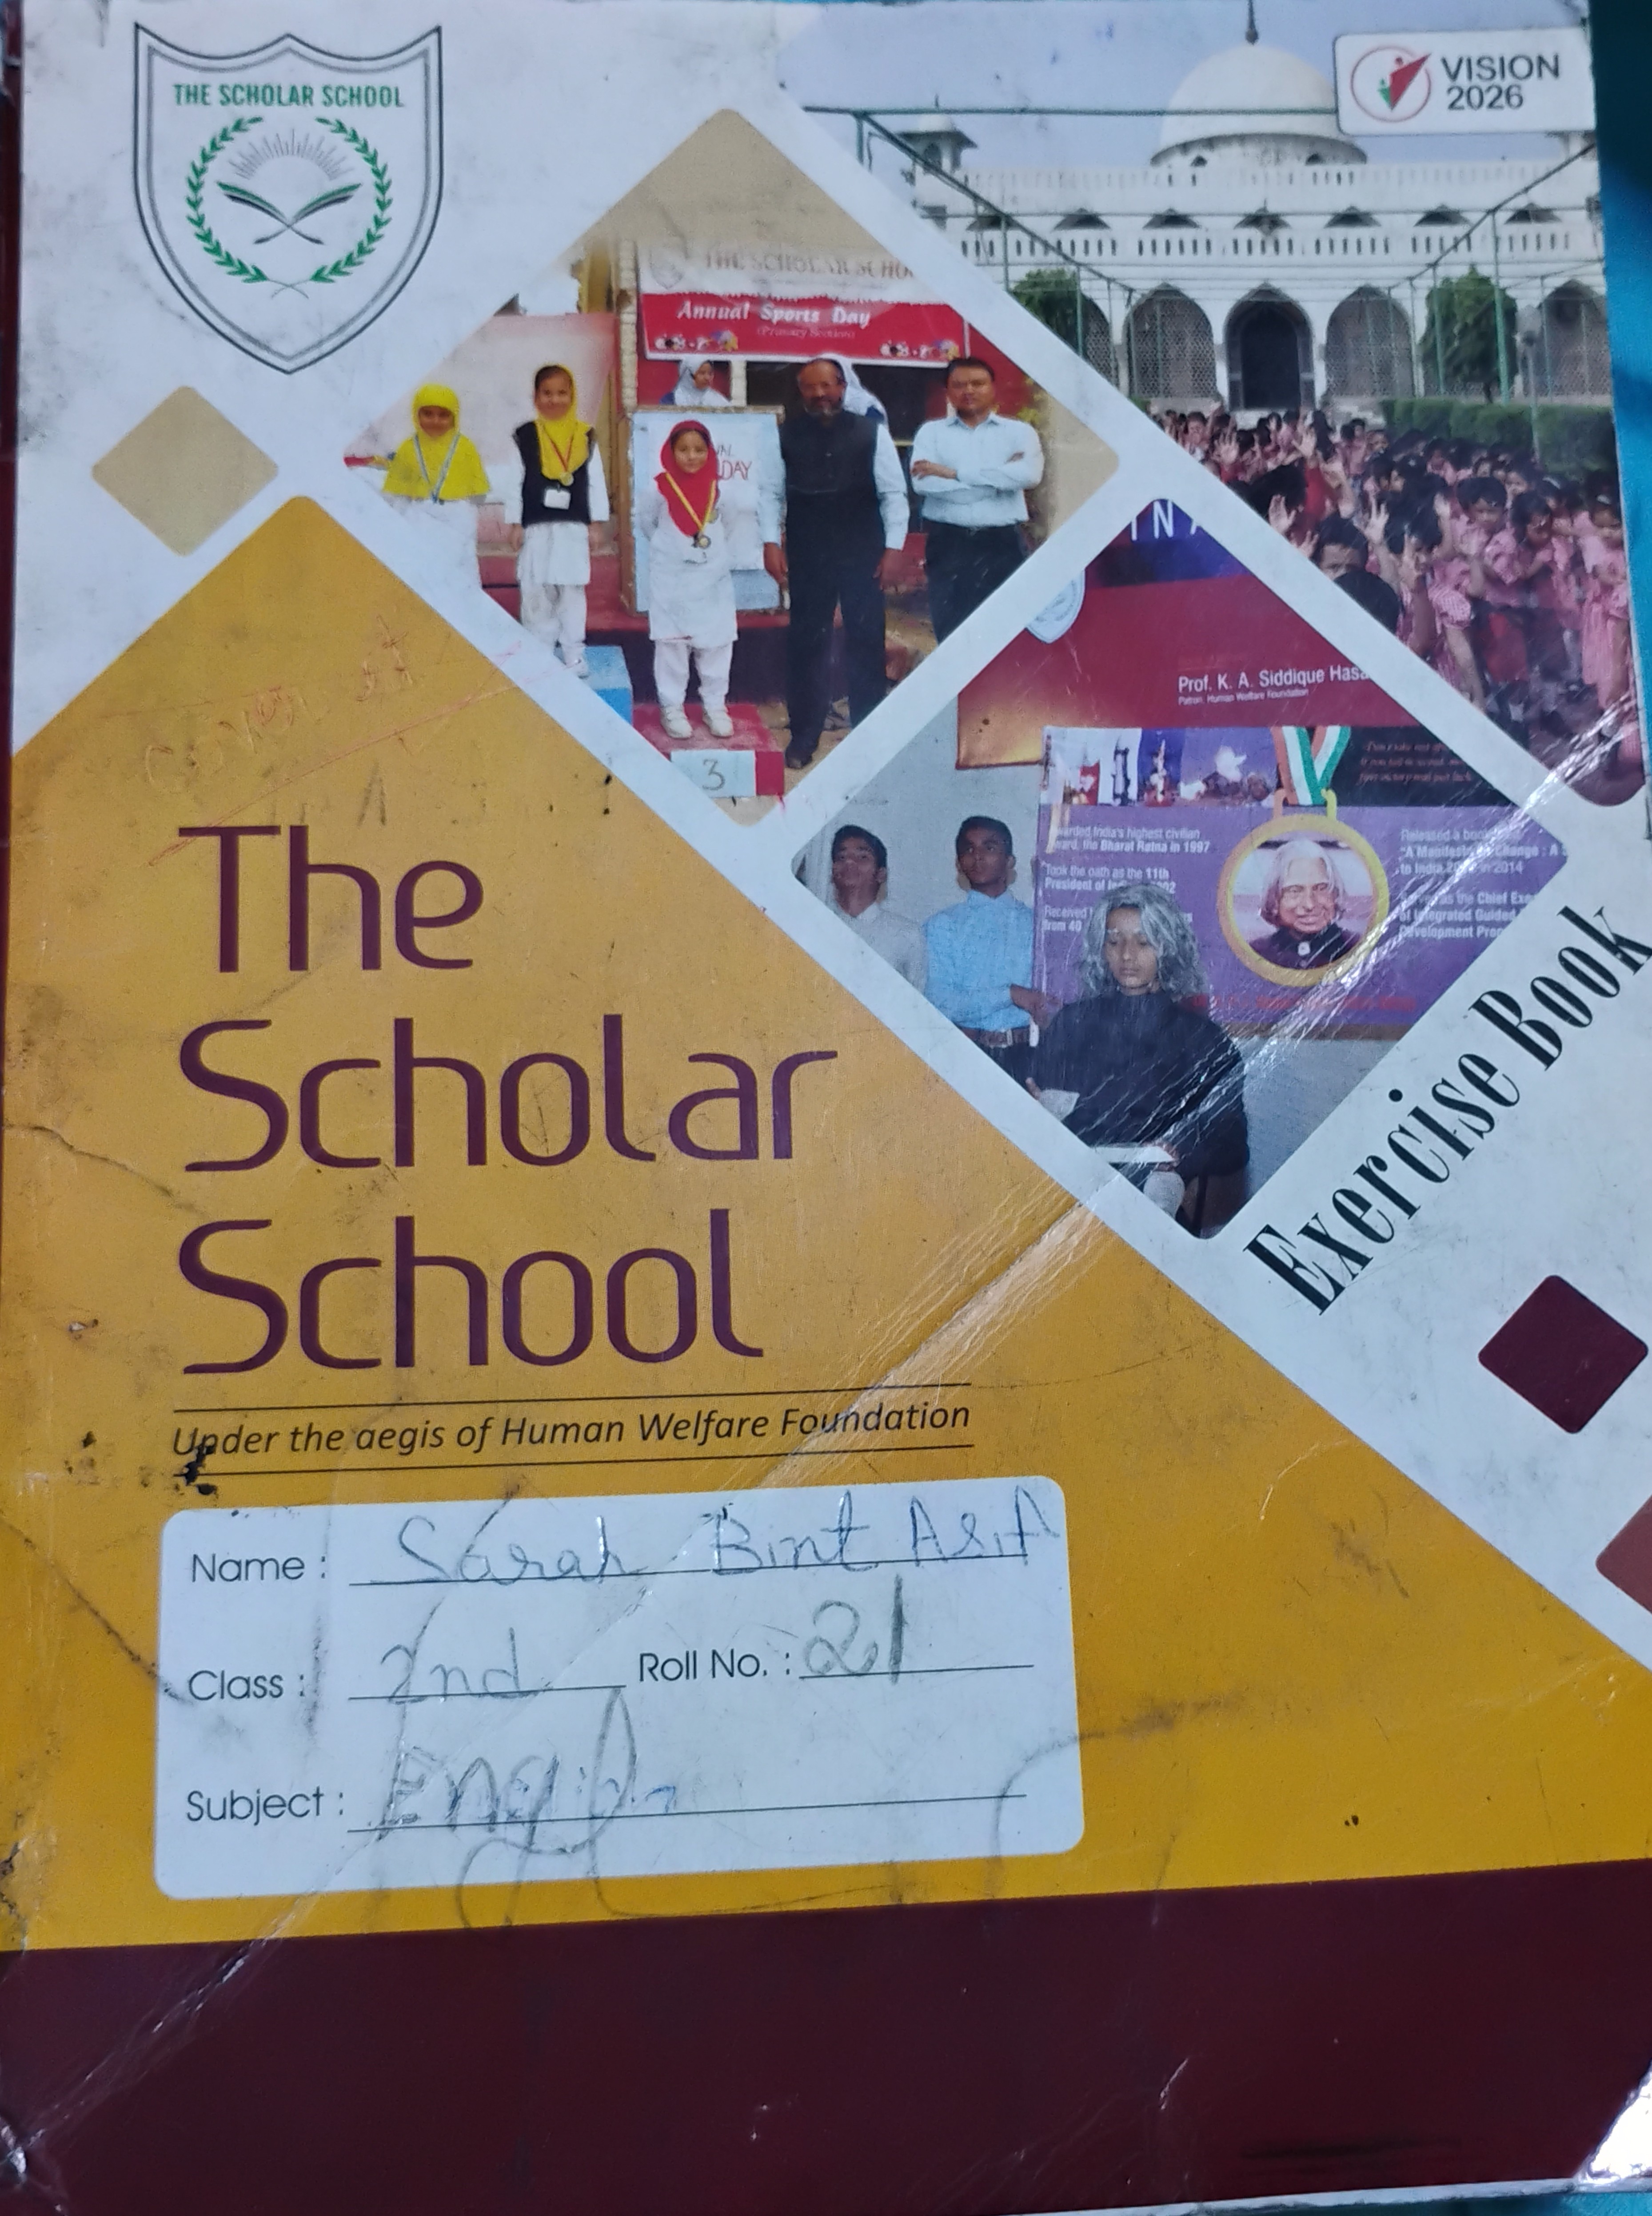 THE SCHOLAR SCHOOL
VISION
2026
THE SCHOLAR SCHO
Annual Sports Day
(Primary Section)
DAY
3
INA
Prof. K. A. Siddique Hasa
Patron, Human Welfare Foundation
warded India's highest civilian
ward, the Bharat Ratna in 1997
Took the oath as the 11th
President of
Received
from 40
Released a book
"A Manifesto Change : A
to India in 2014
as the Chief Exe
of Integrated Guided
Development Prog
Exercise Book
Cover it
The
Scholar
School
Under the aegis of Human Welfare Foundation
Name : Sarah Bint Asif
Class : 2nd Roll No. : 21
Subject : English